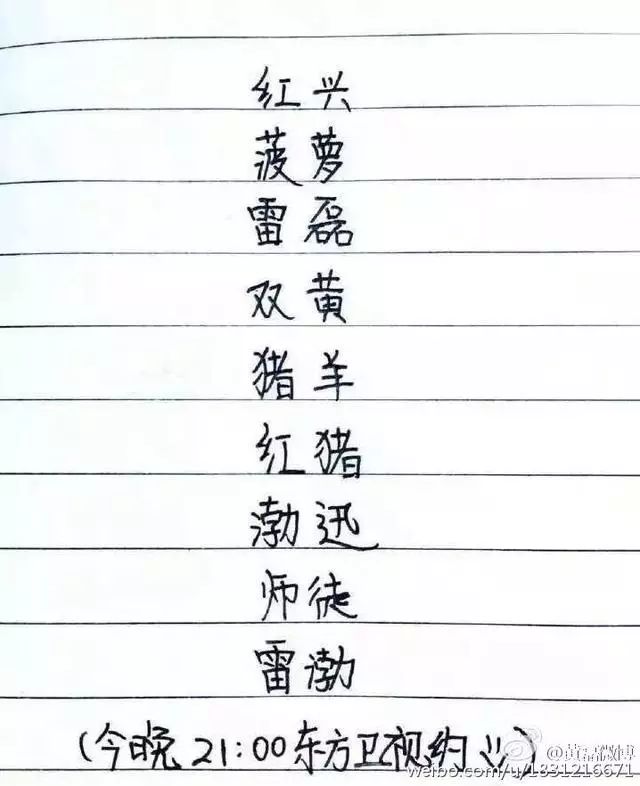 红兴
菠萝
雷磊
双黄
猪羊
红猪
渤迅
师徒
雷渤
(今晚21:00东方卫视约:))
@黄磊微博
weibo.com/u/1831216671